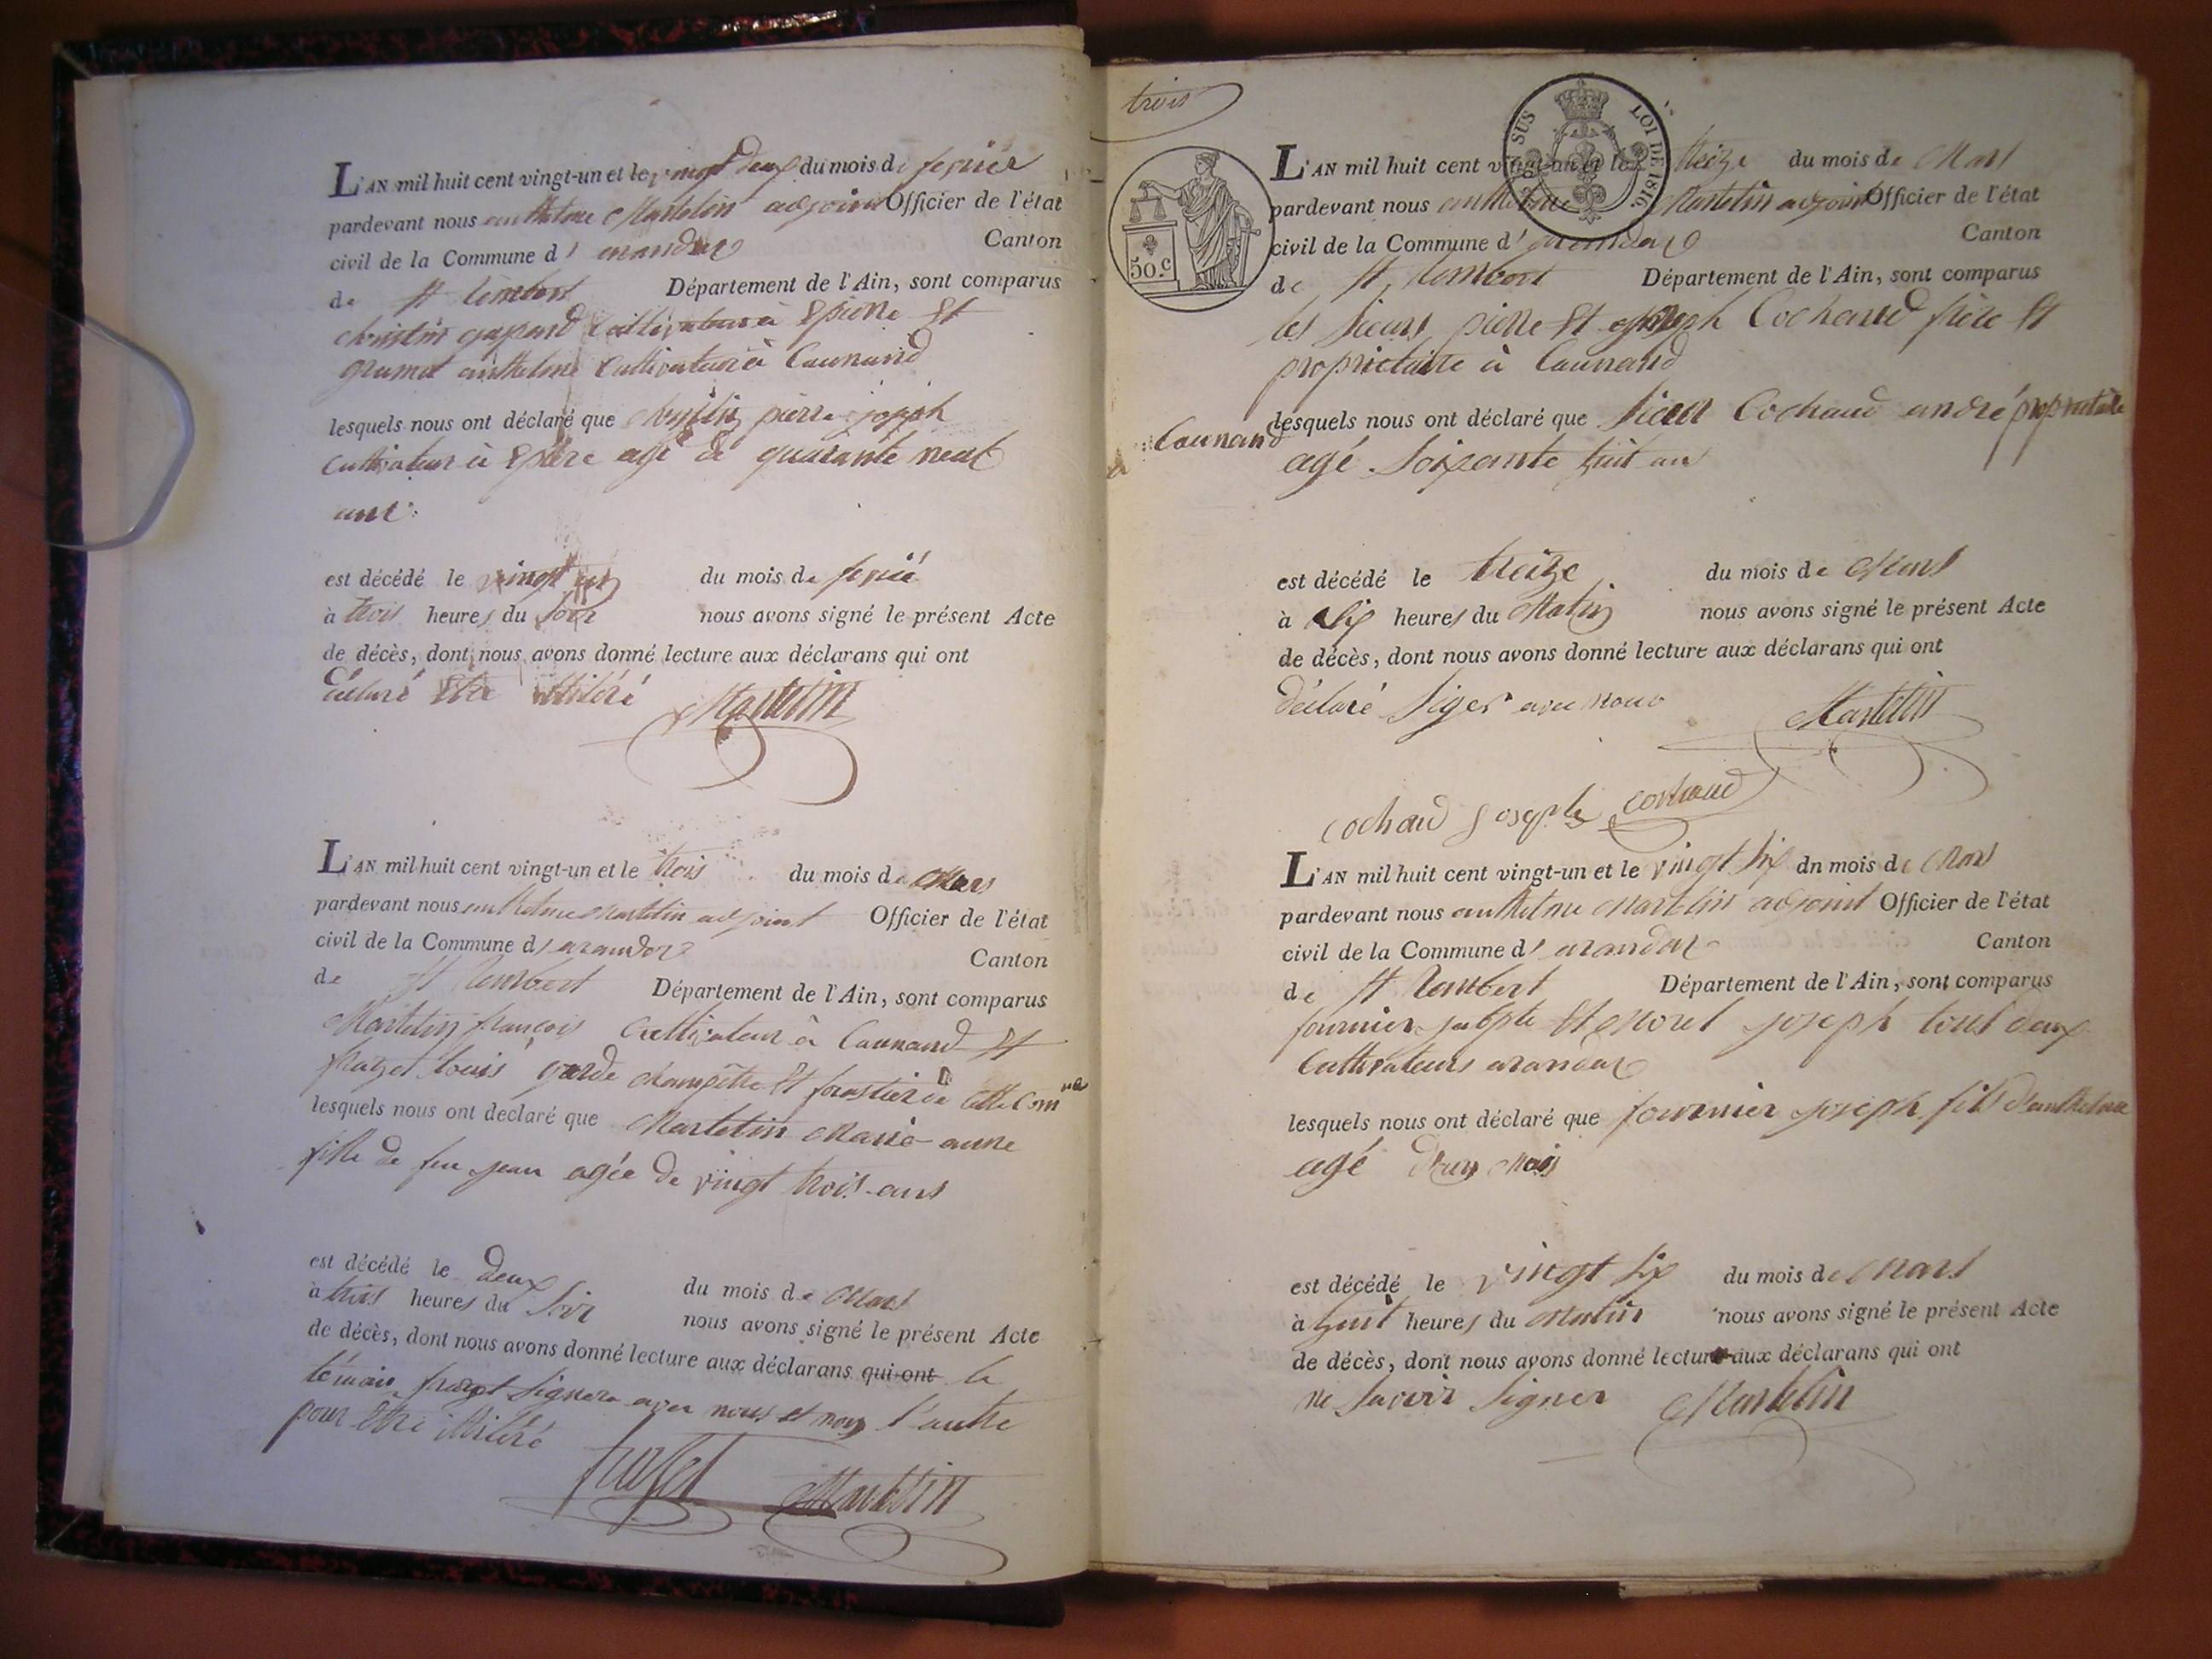 L'AN mil huit cent vingt-un et le vingt deux du mois de fevrier
pardevant nous anthelme Martelin adjoint Officier de l'état
civil de la Commune d' arandas Canton
de St Rembert Département de l'Ain, sont comparus
gaspard cultivateur à Epierre Et
grumet anthelme Cultivateur à Caunand
lesquels nous ont déclaré que pierre joseph
cultivateur à agé de quarante neuf
ans
est décédé le vingt un du mois de
à trois heures du Soir nous avons signé le présent Acte
de décès, dont nous avons donné lecture aux déclarans qui ont
déclaré Etre illitéré Martelin
L'AN mil huit cent vingt-un et le trois du mois de Mars
pardevant nous anthelme Martelin adjoint Officier de l'état
civil de la Commune d' arandas Canton
de St Rembert Département de l'Ain, sont comparus
Martelin françois Cultivateur à Caunand Et
louis garde champêtre Et forestier de Cette Comne
lesquels nous ont declaré que Martelin Marie anne
fille de feu jean agée de vingt trois ans
est décédé le deux du mois de Mars
à trois heures du Soir nous avons signé le présent Acte
de décès, dont nous avons donné lecture aux déclarans qui ont le
témoin Signera avec nous et non l'autre
pour Etre illitéré
Martelin
trois
SUS LOI DE 1816
50.c
L'AN mil huit cent vingt-un et le treize du mois de Mars
pardevant nous anthelme Martelin adjoint Officier de l'état
civil de la Commune d' arandas Canton
de St Rembert Département de l'Ain, sont comparus
les Sieurs pierre Et joseph Cochaud frère Et
proprietaire à Caunand
lesquels nous ont déclaré que Sieur Cochaud andré proprietaire
à Caunand agé Soixante huit ans
est décédé le treize du mois de Mars
à Six heures du Matin nous avons signé le présent Acte
de décès, dont nous avons donné lecture aux déclarans qui ont
déclaré Siger avec nous Martelin
cochaud joseph cochaud
L'AN mil huit cent vingt-un et le vingt Six dn mois de Mars
pardevant nous anthelme Martelin adjoint Officier de l'état
civil de la Commune d' arandas Canton
de St Rembert Département de l'Ain, sont comparus
fournier Et Morel joseph tout deux
Cultivateurs arandas
lesquels nous ont déclaré que fournier joseph fils d'anthelme
agé mois
est décédé le vingt Six du mois de Mars
à huit heures du Matin nous avons signé le présent Acte
de décès, dont nous avons donné lecture aux déclarans qui ont
ne Savoir Signer Martelin